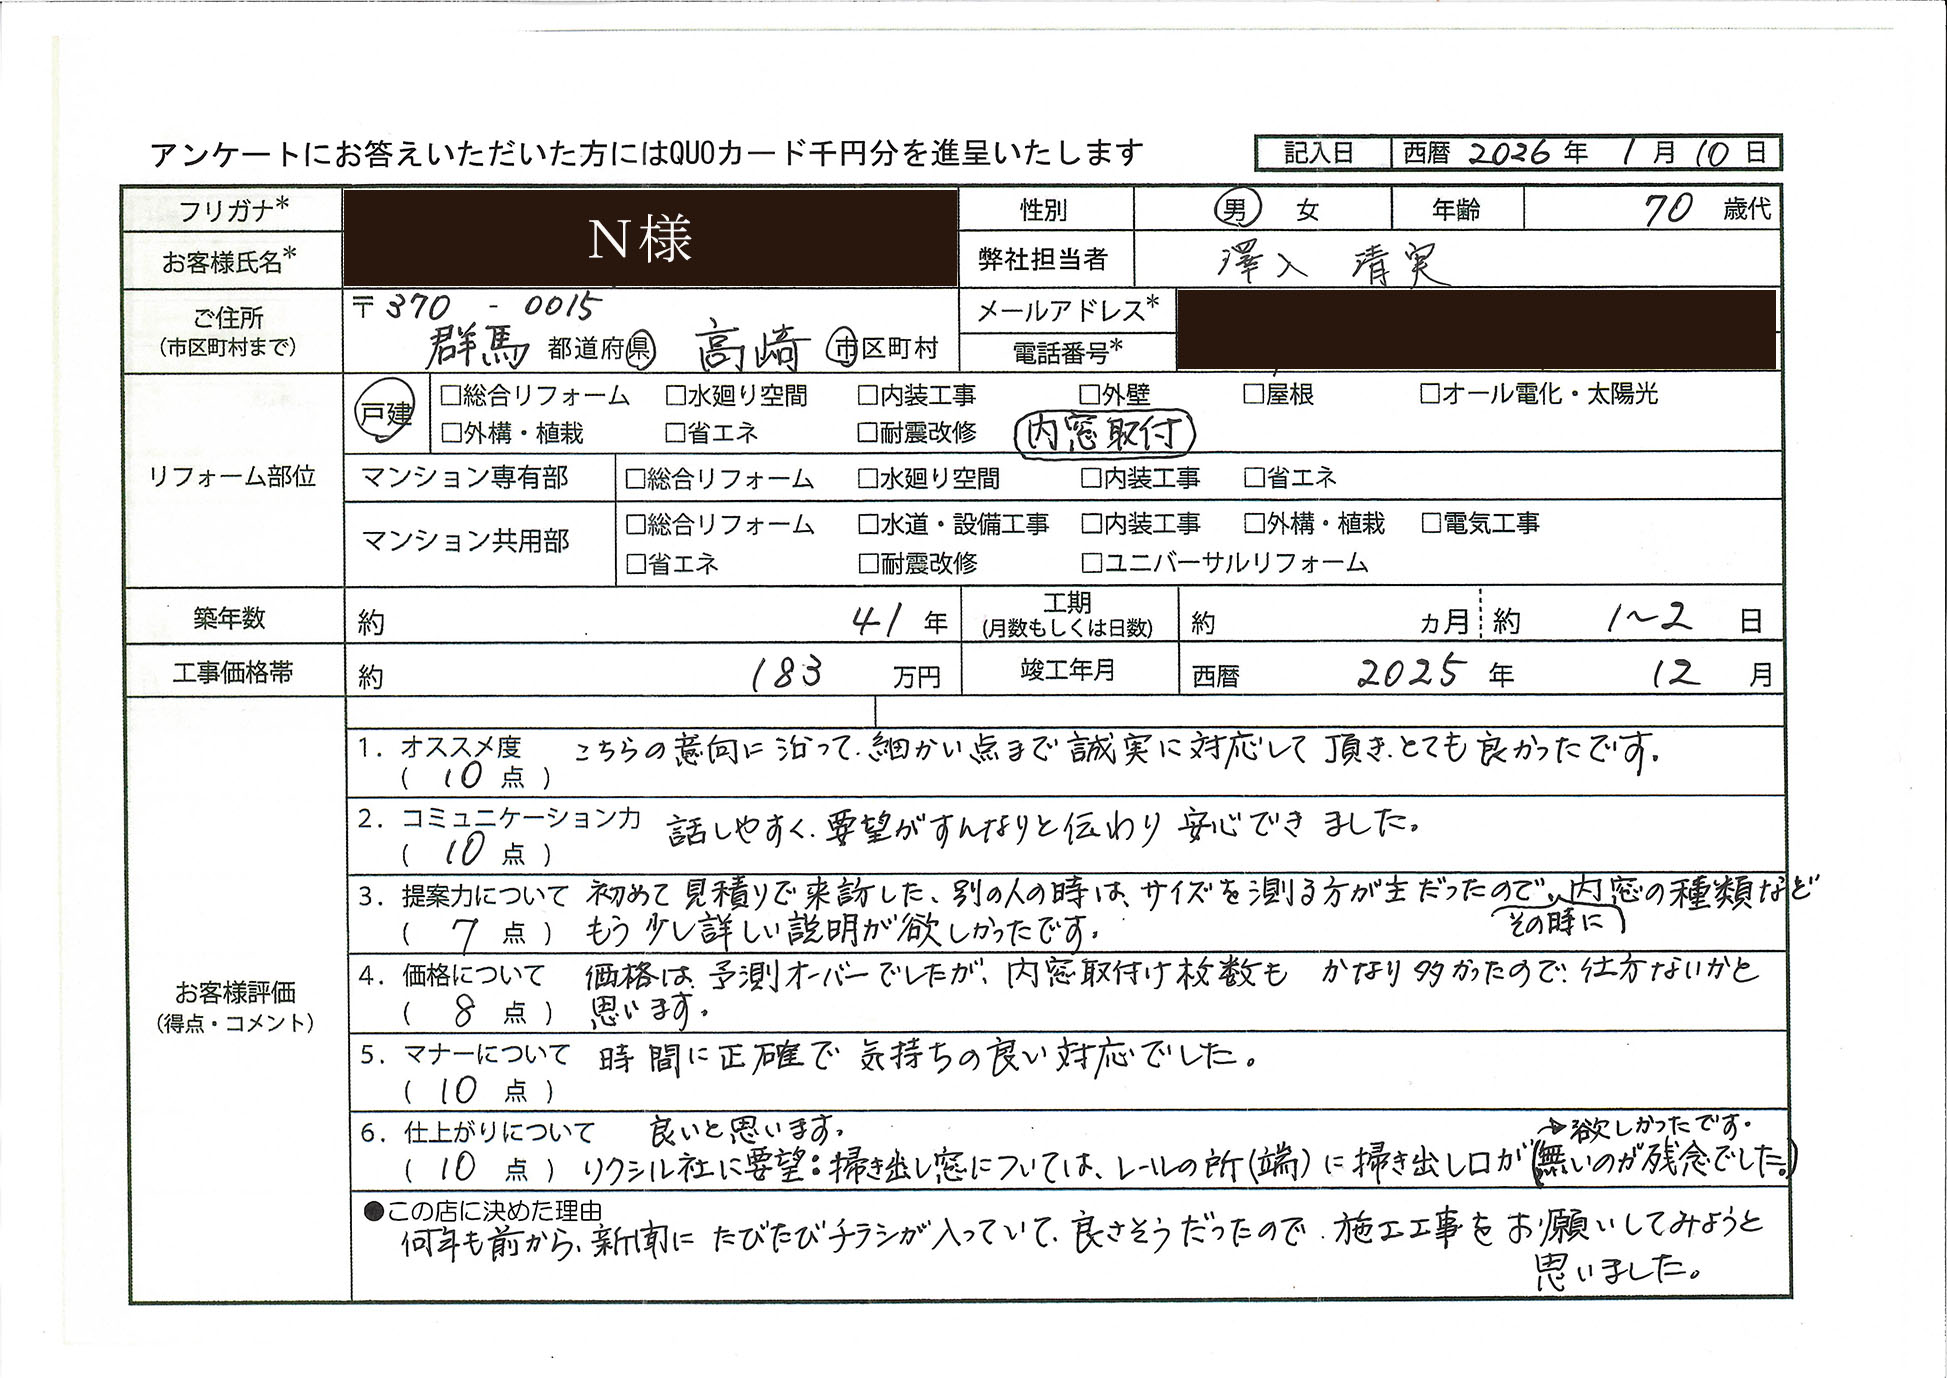 アンケートにお答えいただいた方にはQUOカード千円分を進呈いたします
記入日 西暦 2026 年 1 月 10 日
フリガナ* N様 性別 男 女 年齢 70 歳代
お客様氏名* 弊社担当者 澤入 清実
ご住所 (市区町村まで) 〒370 - 0015 メールアドレス*
群馬 都道府県 高崎 市区町村 電話番号*
リフォーム部位
戸建 □総合リフォーム □水廻り空間 □内装工事 □外壁 □屋根 □オール電化・太陽光
□外構・植栽 □省エネ □耐震改修 内窓取付
マンション専有部 □総合リフォーム □水廻り空間 □内装工事 □省エネ
マンション共用部 □総合リフォーム □水道・設備工事 □内装工事 □外構・植栽 □電気工事
□省エネ □耐震改修 □ユニバーサルリフォーム
築年数 約 41 年 工期 (月数もしくは日数) 約 ヵ月 約 1〜2 日
工事価格帯 約 183 万円 竣工年月 西暦 2025 年 12 月
お客様評価
(得点・コメント)
1. オススメ度 こちらの意向に沿って、細かい点まで誠実に対応して頂き、とても良かったです。
( 10 点 )
2. コミュニケーション力 話しやすく、要望がすんなりと伝わり安心できました。
( 10 点 )
3. 提案力について 初めて見積りで来訪した、別の人の時は、サイズを測る方が主だったので、内窓の種類など
その時に
( 7 点 ) もう少し詳しい説明が欲しかったです。
4. 価格について 価格は、予測オーバーでしたが、内窓取付け枚数も かなり多かったので、仕方ないかと
( 8 点 ) 思います。
5. マナーについて 時間に正確で気持ちの良い対応でした。
( 10 点 )
6. 仕上がりについて 良いと思います。 →欲しかったです。
( 10 点 ) リクシル社に要望:掃き出し窓については、レールの所(端)に掃き出し口が(無いのが残念でした。)
●この店に決めた理由
何年も前から、新聞にたびたびチラシが入っていて、良さそうだったので、施工工事をお願いしてみようと
思いました。